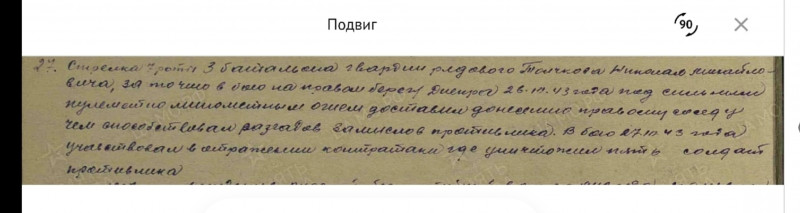 Подвиг
90
27. Стрелка 7 роты 3 батальона гвардии рядового Толчкова Николая Михайло-
вича, за то что в бою на правом берегу Днепра 26.10.43 года под сильным
пулеметно минометным огнем доставлял донесению правому соседу
чем способствовал разгадов замислов противника. В бою 27.10.43 года
участвовал в отражении контратаки где уничтожил пять солдат
противника